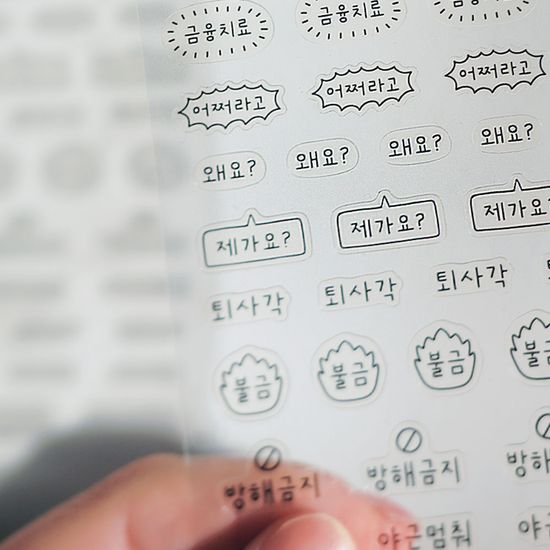 금융치료 금융치료
어쩌라고 어쩌라고 어쩌라고
왜요? 왜요? 왜요? 왜요?
제가요? 제가요? 제가요
퇴사각 퇴사각 퇴사각
불금 불금 불금 불금
방해금지 방해금지 방해
야근멈춰 야근